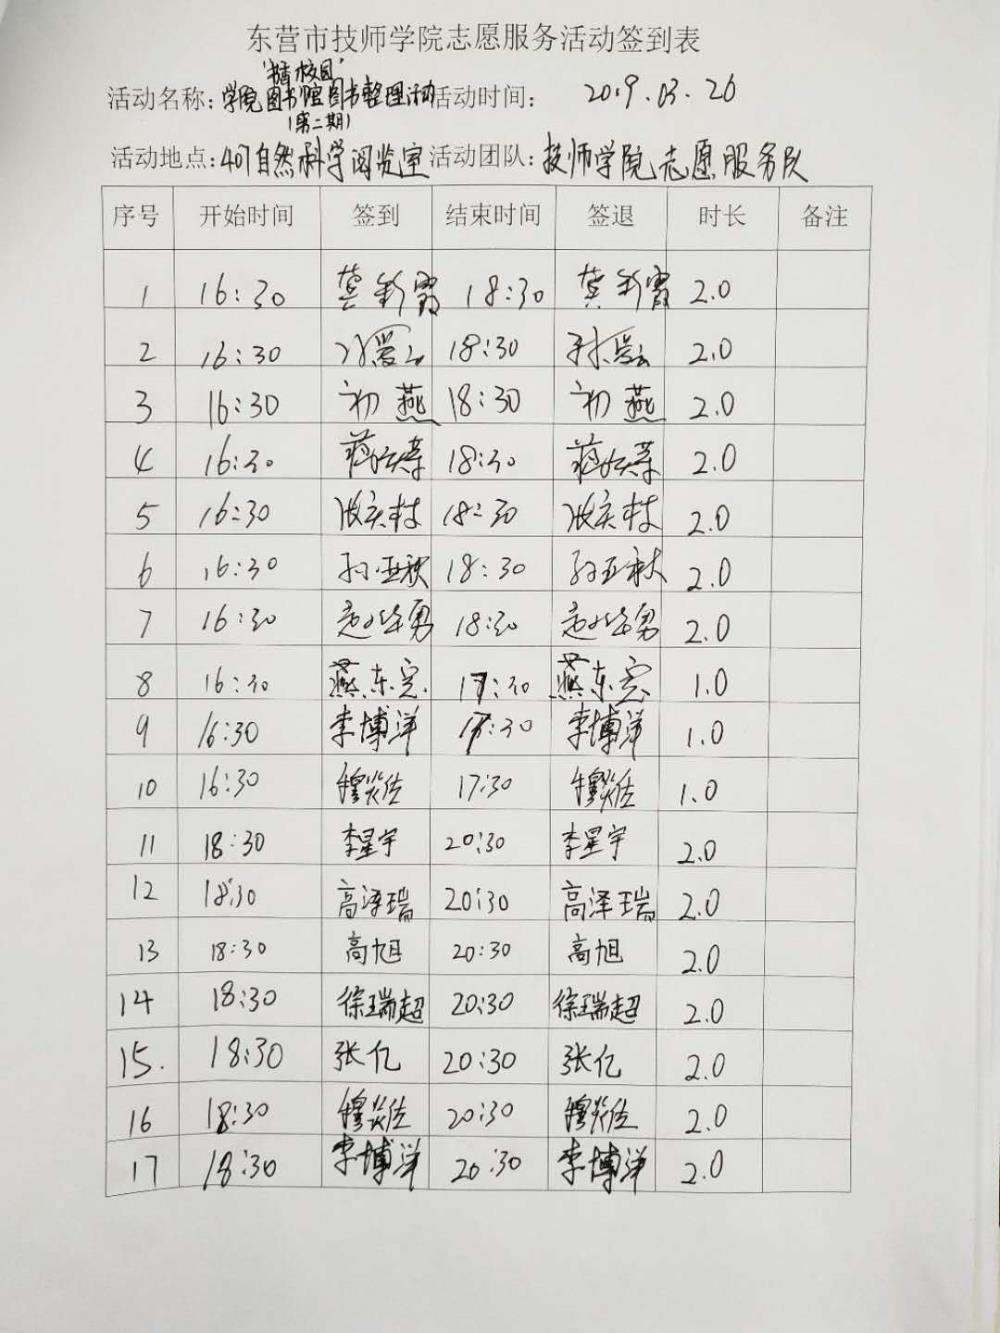 东营市技师学院志愿服务活动签到表
"书香校园"
活动名称:学院图书馆图书整理活动 活动时间: 2019.03.26
(第二期)
活动地点:407自然科学阅览室 活动团队:技师学院志愿服务队
序号 开始时间 签到 结束时间 签退 时长 备注
1 16:30 龚彩霞 18:30 龚彩霞 2.0
2 16:30 孙爱云 18:30 孙爱云 2.0
3 16:30 初燕 18:30 初燕 2.0
4 16:30 18:30 2.0
5 16:30 18:30 2.0
6 16:30 孙亚秋 18:30 孙亚秋 2.0
7 16:30 赵华勇 18:30 赵华勇 2.0
8 16:30 燕东亮 17:30 燕东亮 1.0
9 16:30 李博洋 17:30 李博洋 1.0
10 16:30 穆炎佐 17:30 穆炎佐 1.0
11 18:30 李星宇 20:30 李星宇 2.0
12 18:30 高泽瑞 20:30 高泽瑞 2.0
13 18:30 高旭 20:30 高旭 2.0
14 18:30 徐瑞超 20:30 徐瑞超 2.0
15. 18:30 张亿 20:30 张亿 2.0
16 18:30 穆炎佐 20:30 穆炎佐 2.0
17 18:30 李博洋 20:30 李博洋 2.0